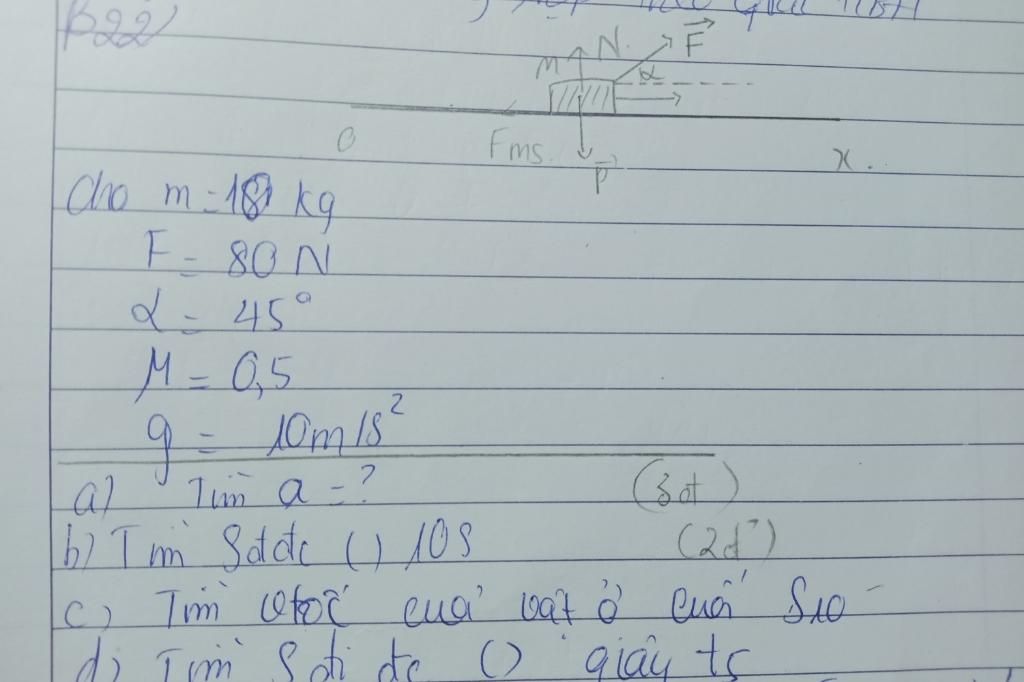 B22
M N. F
α
O Fms. P x.
Cho m = 10 kg
F = 80 N
α = 45°
M = 0,5
g = 10m/s²
a) Tìm a = ? (3đ)
b) Tìm Sđđc () 10s (2đ)
c) Tìm vtốc cuả vật ở cuối S10
d) Tìm S đi đc () giây t5